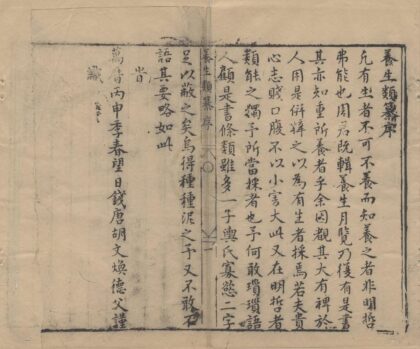 養生類纂序
凢有生者不可不養而知養之者非明哲
弗能也周君既輯養生月覽乃復有是書
其亦知重所養者乎余因觀其大有裨於
人用是併梓之以為有生者採焉若夫貴
心志賤口腹不以小害大此又在明哲者
類能之獨予所當採者也予何敢瑣瑣語
人顧是書條類雖多一子輿氏寡慾二字
養生類纂序
一
足以蔽之矣烏得種種泥之予又不敢不
語其要略如此
旹
萬曆丙申季春望日錢唐胡文煥德父謹
識